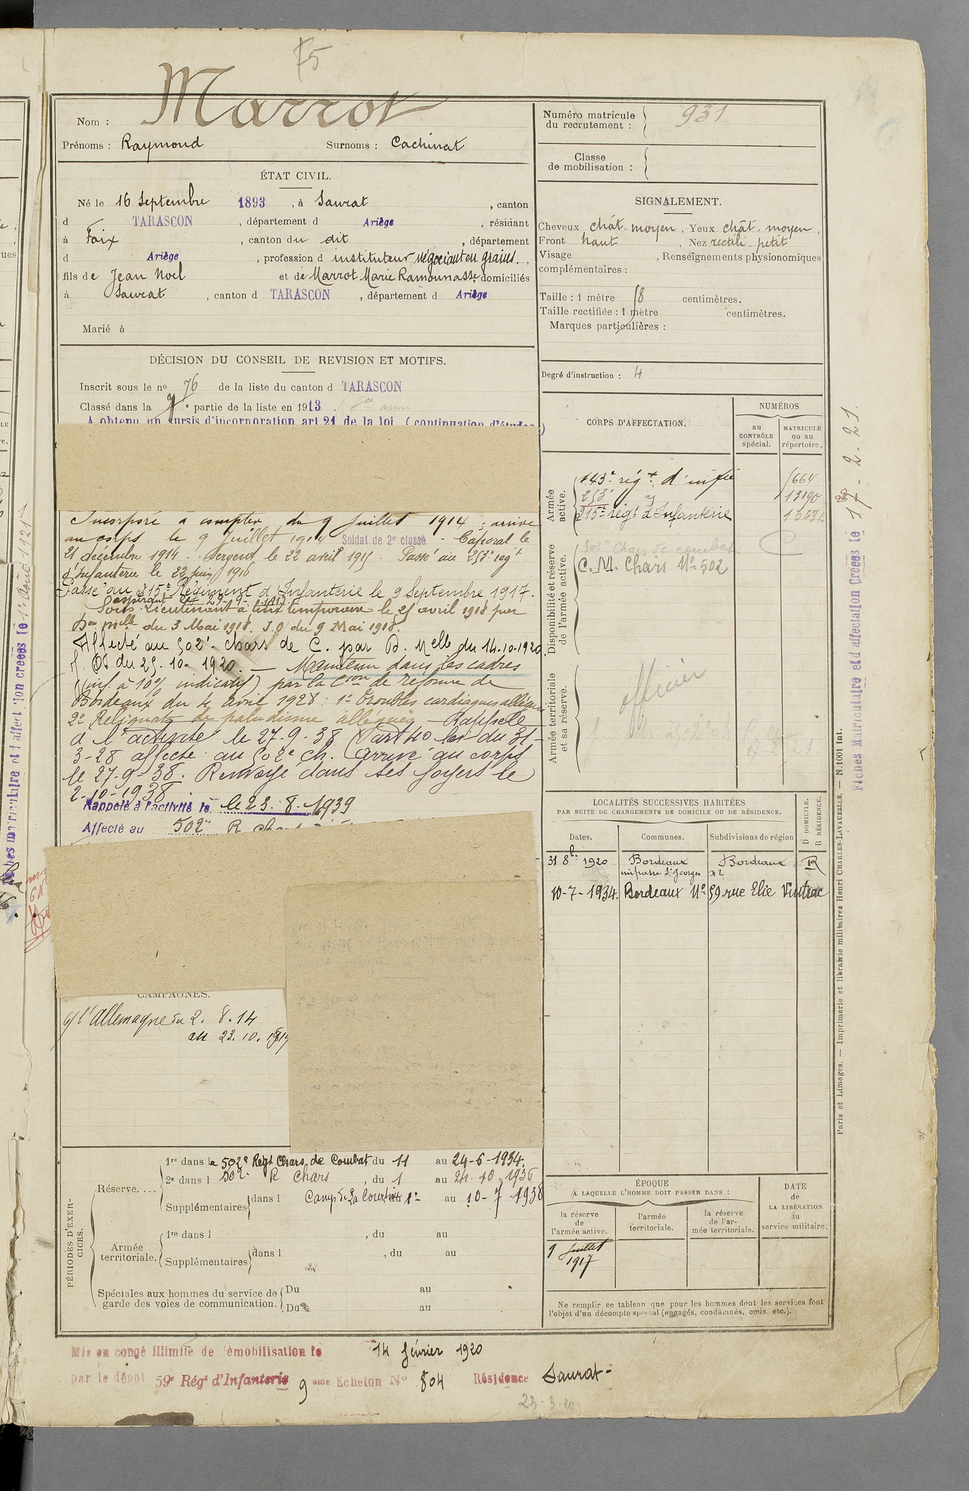 75
Marrot
Nom :
Prénoms : Raymond Surnoms : Cachinat
ÉTAT CIVIL.
Né le 16 Septembre 1893, à Saurat, canton
d TARASCON, département d Ariège, résidant
à Foix, canton du dit, département
d Ariège, profession d instituteur négociant en grains.,
fils de Jean Noël et de Marrot Marie Ramounasse domiciliés
à Saurat, canton d TARASCON, département d Ariège
Marié à
DÉCISION DU CONSEIL DE REVISION ET MOTIFS.
Inscrit sous le no 76 de la liste du canton d TARASCON
Classé dans la partie de la liste en 1913
A obtenu un sursis d'incorporation art 21 de la loi (continuation d'études)
Incorporé à compter du 9 Juillet 1914 ; arrivé
au corps le 9 juillet 1914 Soldat de 2e classe. Caporal le
21 décembre 1914. Sergent le 22 avril 1915. Passé au 253e régt
d'infanterie le 22 juin 1916
Passé au 215e Régiment d'Infanterie le 9 Septembre 1917.
Aspirant
Sous-Lieutenant à titre temporaire le 25 avril 1918 par
Don Melle du 3 Mai 1918. J.O du 9 Mai 1918
Affecté au 502e chars de C. par D. Melle du 14.10.1920.
J. Of du 25.10.1920. — Maintenu dans les cadres
(inf. à 10% indicatif) par la Con de réforme de
Bordeaux du 4 avril 1928 : 1° Troubles cardiaques allégués
2° Reliquats de paludisme allégués — Rappelé
à l'activité le 27.9.38 (art 40 loi du 31-
3-28 affecté au 502e ch. (arrivé au corps
le 27.9.38. Renvoyé dans ses foyers le
2-10-1938
Rappelé à l'activité le le 23.8.1939
Affecté au 502e R chars
CAMPAGNES.
c/ l'Allemagne du 2. 8. 14
au 23. 10. 1917
PÉRIODES D'EXERCICES.
Réserve....
1re dans le 502e Régt Chars de Combat du 11 au 24-6-1934.
2e dans l 502e R Chars, du 1 au 24-10-1936
Supplémentaires dans l Camp de La Courtine 1er au 10-7-1938
Armée territoriale.
1re dans l , du au
Supplémentaires dans l , du au
Spéciales aux hommes du service de garde des voies de communication.
Du au
Du au
Mis en congé illimité de démobilisation le 14 février 1920
par le dépôt 59e Régt d'Infanterie 9eme Echelon No 804 Résidence Saurat
23-3-20
Numéro matricule du recrutement : 931
Classe de mobilisation :
SIGNALEMENT.
Cheveux chât. moyen, Yeux chât. moyen,
Front haut, Nez rectil. petit
Visage , Renseignements physionomiques
complémentaires :
Taille : 1 mètre 78 centimètres.
Taille rectifiée : 1 mètre centimètres.
Marques particulières :
Degré d'instruction : 4
CORPS D'AFFECTATION.
NUMÉROS
au CONTRÔLE spécial.
MATRICULE ou au répertoire.
Armée active.
143e régt d'infie
253e
12190
215e régt d'Infanterie
Disponibilité et réserve de l'armée active.
502e Chars de combat
C.M. Chars No 502
Armée territoriale et sa réserve.
officier
LOCALITÉS SUCCESSIVES HABITÉES
PAR SUITE DE CHANGEMENTS DE DOMICILE OU DE RÉSIDENCE.
Dates. Communes. Subdivisions de région D DOMICILE. R RÉSIDENCE.
31 8bre 1920 Bordeaux Bordeaux R
impasse St Georges
10-7-1934. Bordeaux No 59 rue Elie Vintrac
ÉPOQUE
A LAQUELLE L'HOMME DOIT PASSER DANS :
la réserve de l'armée active.
l'armée territoriale.
la réserve de l'armée territoriale.
DATE de LA LIBÉRATION du service militaire.
1 Juillet 1917
Ne remplir ce tableau que pour les hommes dont les services font
l'objet d'un décompte spécial (engagés, condamnés, omis, etc.).
Paris et Limoges. — Imprimerie et librairie militaires Henri CHARLES-LAVAUZELLE. — N. 1001 int.
Fiches Matriculaire et d'affectation Créées le 17-2-21